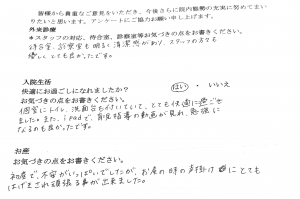 皆様から貴重なご意見をいただき、今後さらに院内態勢の充実に努めてまい
りたいと思います。アンケートにご協力お願い申し上げます。
外来診療
＊スタッフの対応、待合室、診察室等お気づきの点をお書きください。
待合室、診察室も明るく清潔感があり、スタッフの方も
優しくとても良かったです。
入院生活
快適にお過ごしになれましたか？ はい ・ いいえ
お気づきの点をお書きください。
個室にトイレ、洗面台も付いていて、とても快適に過ごせ
ました。また、iPadで、育児指導の動画が見れ、勉強に
なるのも良かったです。
お産
お気づきの点をお書きください。
初産で、不安がいっぱいでしたが、お産の時の声掛けにとても
はげまされ頑張る事が出来ました。